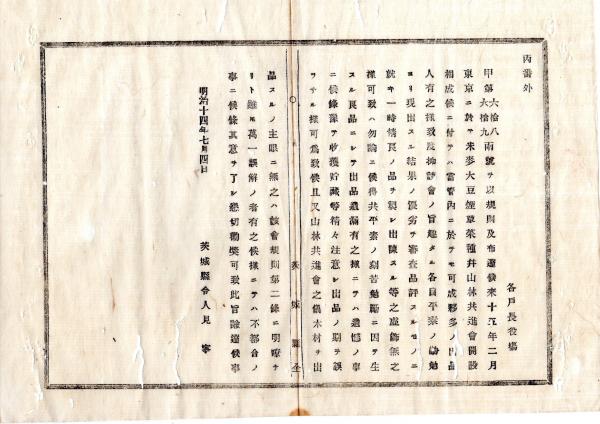 丙番外
各戸長役場
甲第六拾八六拾九兩號ヲ以規則及布達候來十五年二月
東京ニ於テ米麥大豆煙草菜種幷山林共進會開設
相成候ニ付テハ當管內ニ於テモ可成夥多ノ出品
人有之樣致度抑該會ノ旨趣タル各自平素ノ勤勉
ヨリ現出スル結果ノ優劣ヲ審査品評スルモノニ
就キ一時精良ノ品ヲ製シ出陳スル等之虛飾無之
樣可致ハ勿論ニ候得共平素ノ刻苦勉勵ニ因テ生
スル良品ニシテ出品遺漏有之樣ニテハ遺憾ノ事
ニ候條豫テ收獲貯藏等精々注意シ出品ノ期ヲ誤
ラサル樣可爲致候且又山林共進會之儀木材ヲ出
茨城縣令
品スルノ主眼ニ無之ハ該會規則第二條ニ明瞭ナ
リト雖モ萬一誤解ノ者有之候樣ニテハ不都合ノ
事ニ候條其意ヲ了シ懇切勸奬可致此旨諭達候事
明治十四年七月四日
茨城縣令人見寧